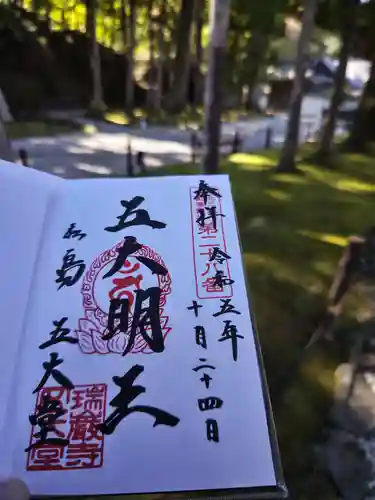 奉拝
令和五年
十月二十四日
第二十八番
五大明王
松島
五大堂
瑞巌寺
五大堂